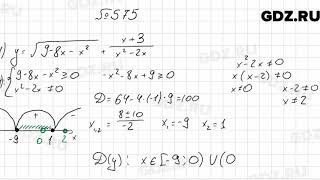 №575
GDZ.RU
) y = √(9-8x-x²) + (x+3)/(x²-2x)
{9-8x-x² ≥ 0
x²-2x ≠ 0
-x²-8x+9 ≥ 0
x²-2x ≠ 0
x(x-2) ≠ 0
x ≠ 0 x-2 ≠ 0
x ≠ 2
D = 64-4·(-1)·9 = 100
x₁,₂ = (8±10)/(-2) x₁ = -9 x₂ = 1
- + -
-9 0 1 2
D(y): x ∈ [-9; 0) ∪ (0